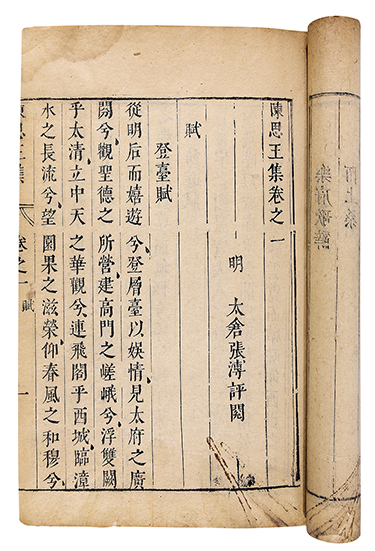 陳思王集卷之一
明　太倉張溥評閱
賦
登臺賦
從明后而嬉遊兮登層臺以娛情見太府之廣
開兮觀聖德之所營建高門之嵯峨兮浮雙闕
乎太清立中天之華觀兮連飛閣乎西城臨漳
水之長流兮望園果之滋榮仰春風之和穆兮
陳思王集　卷之一　賦　一